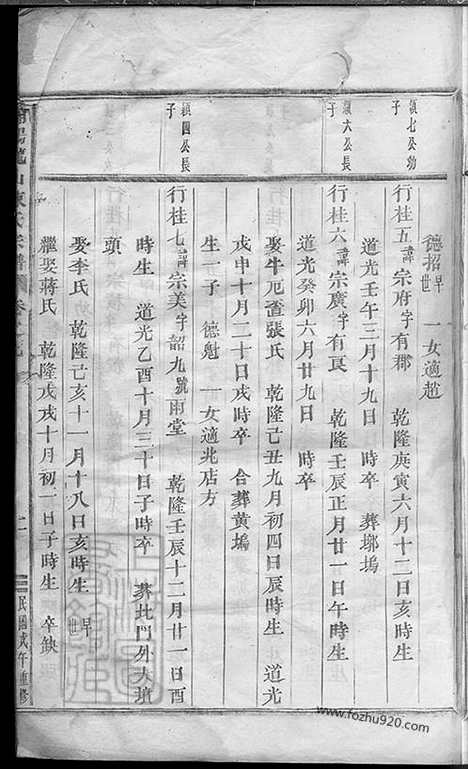 德招早世 一女適趙
鎮七公幼子
行桂五諱宗府字有郡 乾隆庚寅六月十二日亥時生
道光壬午三月十九日 時卒 葬塜塢
鎮六公長子
行桂六諱宗廣字有良 乾隆壬辰正月廿一日午時生
道光癸卯六月廿九日 時卒
娶牛厄畬張氏 乾隆己丑九月初四日辰時生 道光
戊申十月二十日戌時卒 合葬黄塢
生一子 德魁 一女適北店方
鎮四公長子
行桂七諱宗美字韶九號雨堂 乾隆壬辰十二月廿一日酉
時生 道光乙酉十月三十日子時卒 葬北門外大墳
頭
娶李氏 乾隆己亥十一月十八日亥時生 早世
繼娶蔣氏 乾隆戊戌十月初一日子時生 卒缺
民國戊午重修
www.fozhu920.com